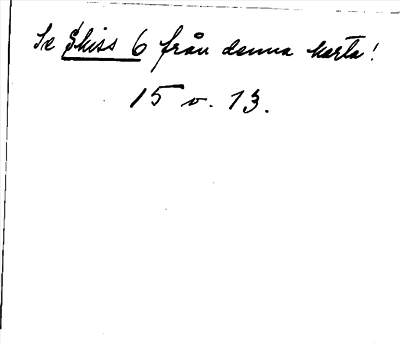 Se Skiss 6 från denna karta!
15 v. 13.